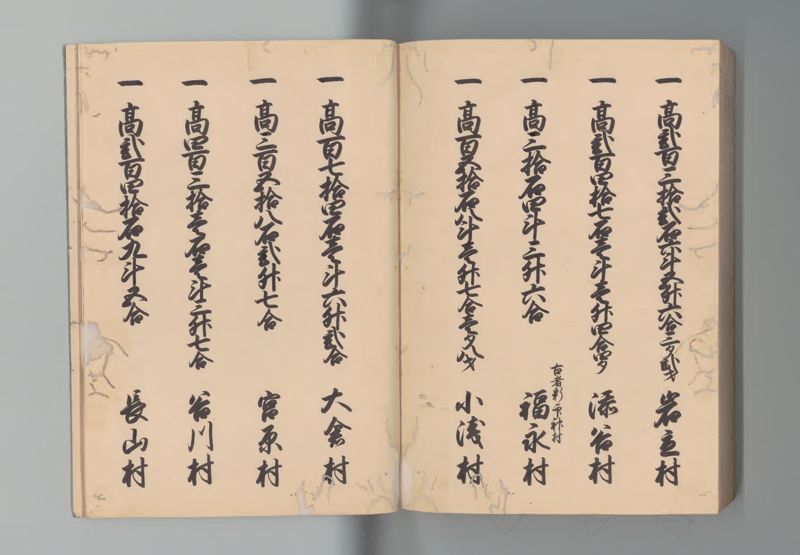 一 高弐百三拾弐石六斗五升六合三夕弐才 岩立村
一 高弐百四拾七石壱斗壱升四合四夕 添谷村
一 高三拾石四斗三升六合 福永村
一 高百五拾石八斗壱升七合壱夕八才 小浅村
一 高百七拾四石壱斗六升弐合 大倉村
一 高三百五拾八石弐升七合 宮原村
一 高四百三拾壱石壱斗三升七合 谷川村
一 高弐百四拾石九斗五合 長山村